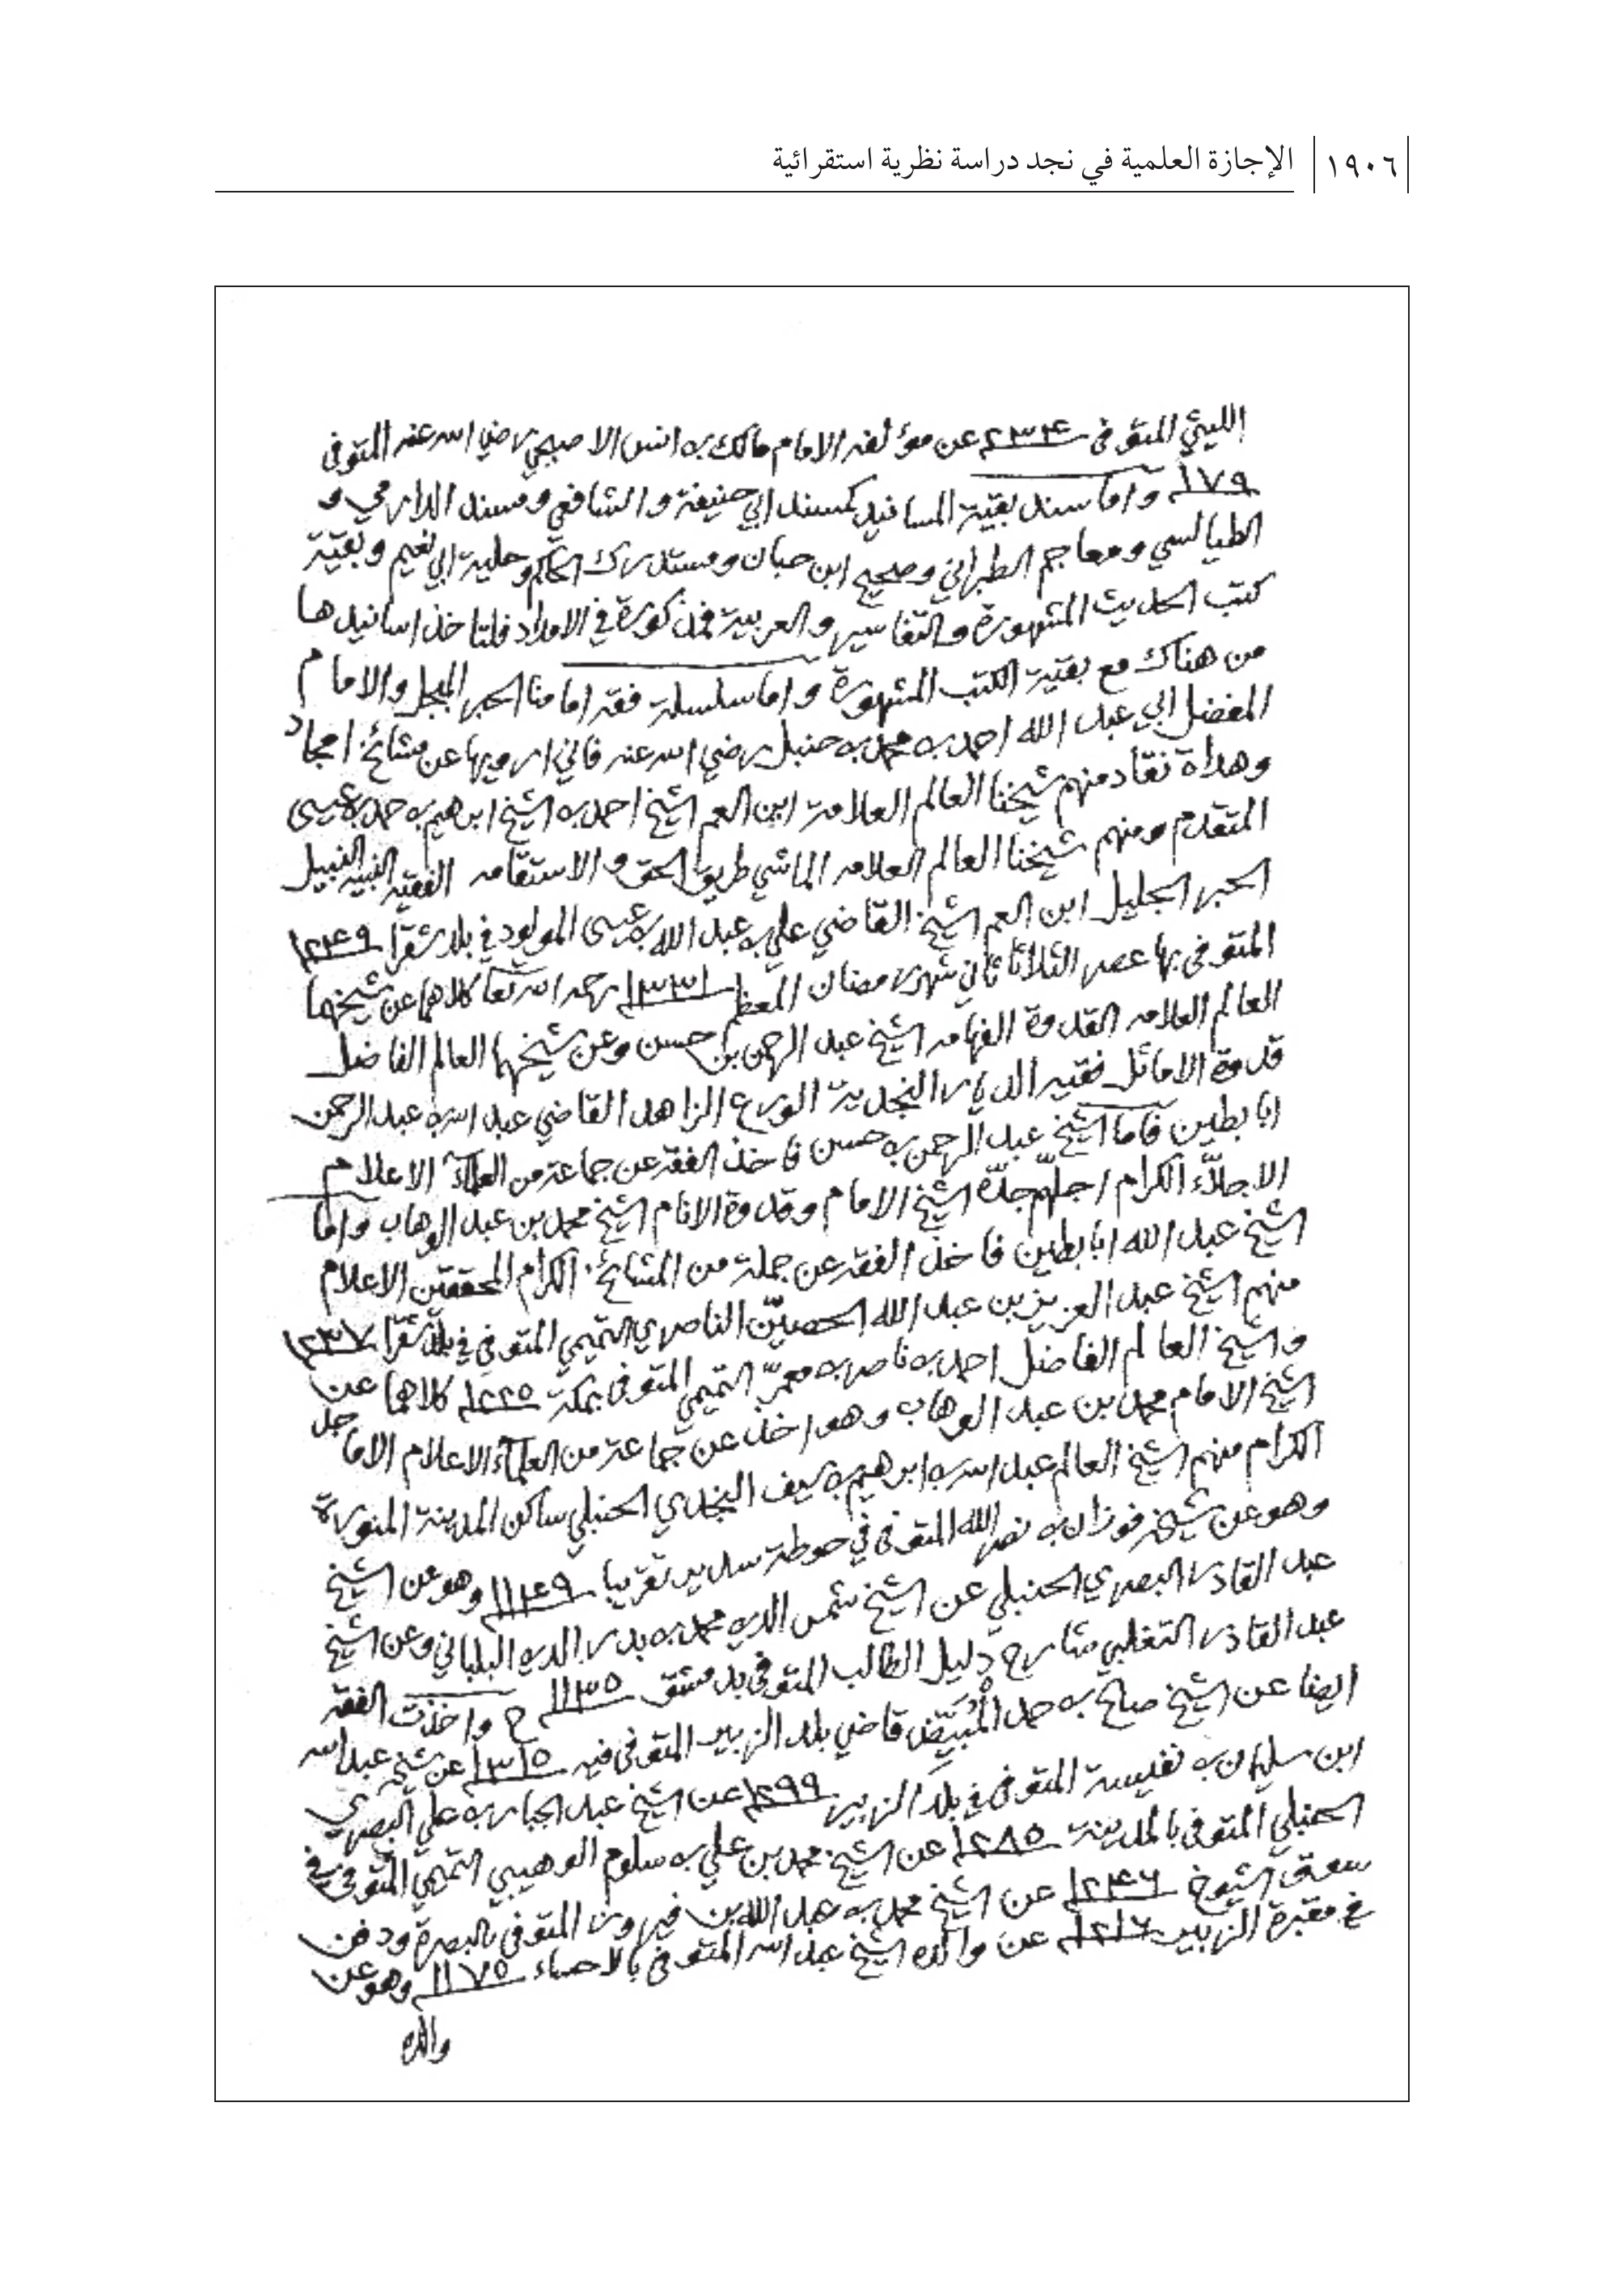 ١٩٠٦ الإجازة العلمية في نجد دراسة نظرية استقرائية
الليثي المتوفى ٢٣٤ عن مؤلفه الامام مالك به انس الاصبحي رضي الله عنه المتوفى
١٧٩ واما سند بقية المسانيد كمسند ابي حنيفة والشافعي ومسند الدارمي و
الطيالسي ومعاجم الطبراني وصحيح ابن حبان ومستدرك الحاكم وحلية ابي نعيم وبقية
كتب الحديث المشهورة والتفاسير والعربية فمذكورة في الامداد فلتاخذ اسانيدها
من هناك مع بقية الكتب المشهورة واما سلسلة فقه امامنا الحبر المبجل والامام
المفضل ابي عبد الله احمد به محمد به حنبل رضي الله عنه فاني ارويها عن مشائخ امجاد
وهداة نقاد منهم شيخنا العالم العلامة ابن العم الشيخ احمد به الشيخ ابرهيم به حمد به عيسى
المتقدم ومنهم شيخنا العالم العلامه الماشي طريق الحق والاستقامه الفقيه النبيه النبيل
الحبر الجليل ابن العم الشيخ القاضي علي به عبد الله به عيسى المولود في بلد شقرا ١٢٤٩
المتوفى بها عصر الثلاثا ثاني شهر رمضان المعظم ١٣٣١ رحمه الله تعا كلاهما عن شيخهما
العالم العلامه القدوة الفهامه الشيخ عبد الرحمن بن حسن وعن شيخهما العالم الفاضل
قدوة الاماثل فقيه الديار النجدية الورع الزاهد القاضي عبد الله به عبد الرحمن
ابا بطين فاما الشيخ عبد الرحمن به حسن فاخذ الفقه عن جماعة من العلمآء الاعلام
الاجلّاء الكرام اجلّهم جدّه الشيخ الامام وقدوة الانام الشيخ محمد بن عبد الوهاب واما
الشيخ عبد الله ابا بطين فاخذ الفقه عن جملة من المشائخ الكرام المحققين الاعلام
منهم الشيخ عبد العزيز بن عبد الله الحصيّن الناصري التميمي المتوفى في بلد شقرا ١٢٣٧
والشيخ العالم الفاضل احمد به ناصر به معمرّ التميمي المتوفى بمكة ١٢٢٥ كلاهما عن
الشيخ الامام محمد بن عبد الوهاب وهو اخذ عن جماعة من العلمآء الاعلام الاماجل
الكرام منهم الشيخ العالم عبد الله به ابرهيم به سيف النجدي الحنبلي ساكن المدينة المنورة
وهو عن شيخه فوزان به نصر الله المتوفى في حوطة سدير تقريبا ١١٤٩ وهو عن الشيخ
عبد القادر البصري الحنبلي عن الشيخ شمس الديه محمد به بدر الديه البلباني وعن الشيخ
عبد القادر التغلبي شارح دليل الطالب المتوفى بدمشق ١١٣٥ ح واخذت الفقه
ايضا عن الشيخ صالح به حمد المُبَيِّض قاضي بلد الزبير المتوفى فيه ١٣١٥ عن شيخه عبد الله
ابن سليمان به نفيسة المتوفى في بلد الزبير ١٢٩٩ عن الشيخ عبد الجبار به علي البصري
الحنبلي المتوفى بالمدينة ١٢٨٥ عن الشيخ محمد بن علي به سلوم الوهيبي التميمي المتوفى في
سوق الشيوخ ١٢٤٦ عن الشيخ محمد به عبد الله بن فيروز المتوفى بالبصرة ودفن
في مقبرة الزبير ١٢١٦ عن والده الشيخ عبد الله المتوفى بالاحساء ١١٧٥ وهو عن
والده